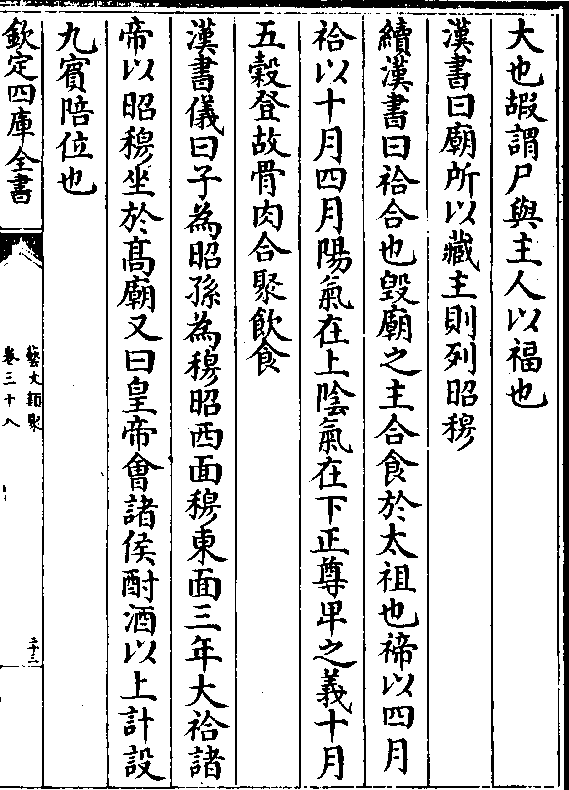 大也嘏謂尸與主人以福也
漢書曰廟所以藏主則列昭穆
續漢書曰祫合也毀廟之主合食於太祖也禘以四月
祫以十月四月陽氣在上陰氣在下正尊卑之義十月
五穀登故骨肉合聚飲食
漢書儀曰子為昭孫為穆昭西面穆東面三年大祫諸
帝以昭穆坐於髙廟又曰皇帝會諸侯酎酒以上計設
九賓陪位也
欽定四庫全書
藝文類聚
卷三十八
二十二